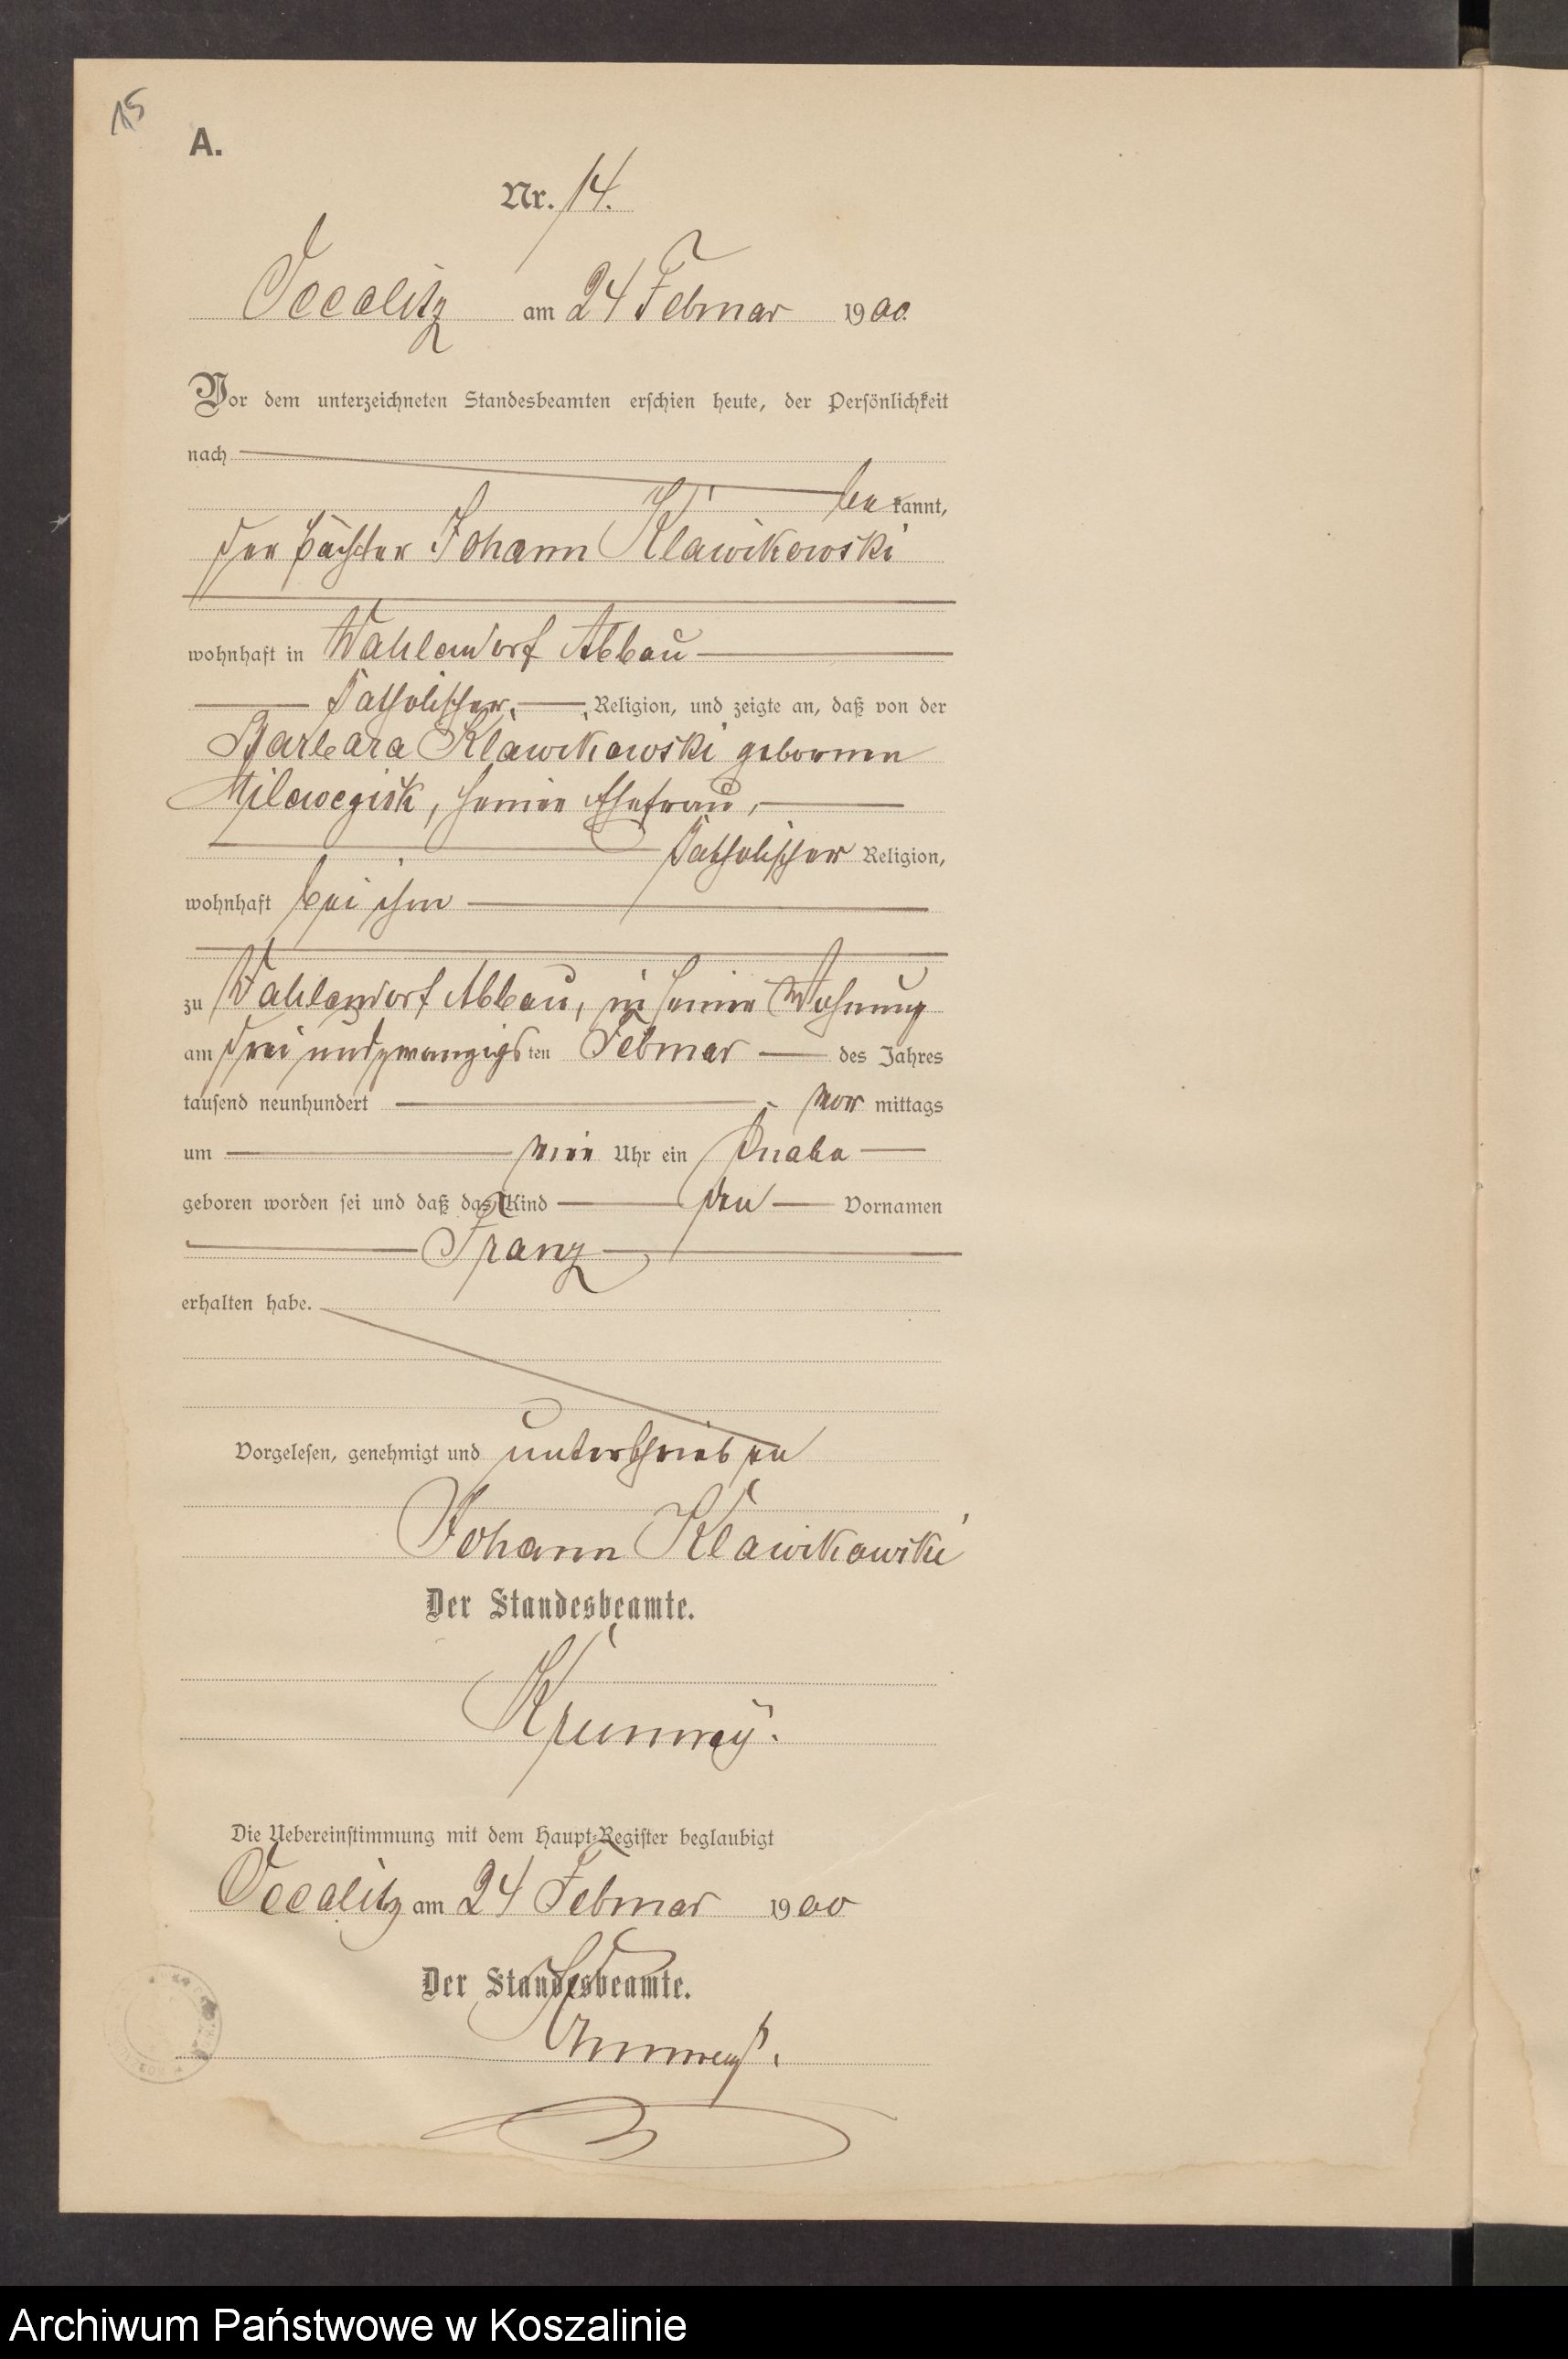 15
A.
Nr. 14.
Occalitz am 24 Februar 1900.
Vor dem unterzeichneten Standesbeamten erschien heute, der Persönlichkeit
nach
bekannt,
der Pächter Johann Klawikowski
wohnhaft in Wahlendorf Abbau
katholischer Religion, und zeigte an, daß von der
Barbara Klawikowski gebornen
seiner Ehefrau,
katholischer Religion,
wohnhaft bei ihm
zu Wahlendorf Abbau, in seiner Wohnung
am drei und zwanzigsten Februar des Jahres
tausend neunhundert vor mittags
um vier Uhr ein Knabe
geboren worden sei und daß das Kind den Vornamen
Franz
erhalten habe.
Vorgelesen, genehmigt und unterschrieben
Johann Klawikowski
Der Standesbeamte.
Die Uebereinstimmung mit dem Haupt-Register beglaubigt
Occalitz am 24 Februar 1900
Der Standesbeamte.
Archiwum Państwowe w Koszalinie